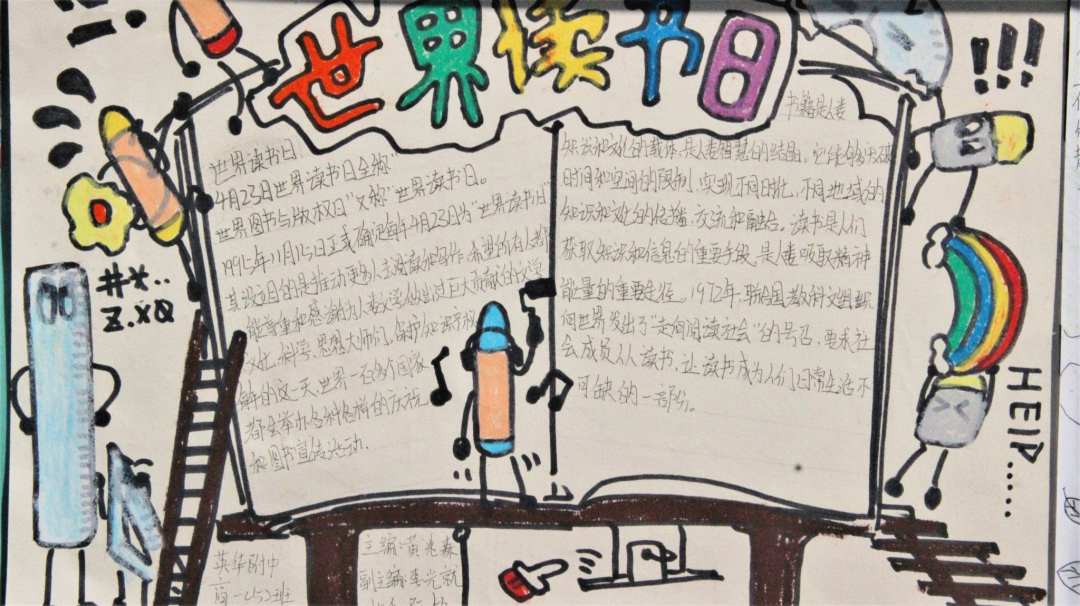 世界读书日
世界读书日
4月23日世界读书日全称"
世界图书与版权日"又称"世界读书日。
1995年11月15日正式确定每年4月23日为"世界读书日"
其设立目的是推动更多人去阅读和写作,希望所有人都
能尊重和感谢为人类文学做出过巨大贡献的文学
文化,科学,思想大师们,保护知识产权
每年的这一天,世界一百多个国家
都会举办各种各样的庆祝
和图书宣传活动.
书籍是人类
知识和文化的载体,是人类智慧的结晶。它能够突破
时间和空间的限制,实现不同时代,不同地域的
知识和文化的传播,交流和融合。读书是人们
获取知识和信息的重要手段,是人类吸取精神
能量的重要途径。1972年,联合国教科文组织
向世界发出了"走向阅读社会"的号召,要求社
会成员人人读书,让读书成为人们日常生活不
可缺的一部份。
#*..
Z.XQ
HElP.....
英华附中
高一(5)班
主编:黄兆森
副主编:李光就